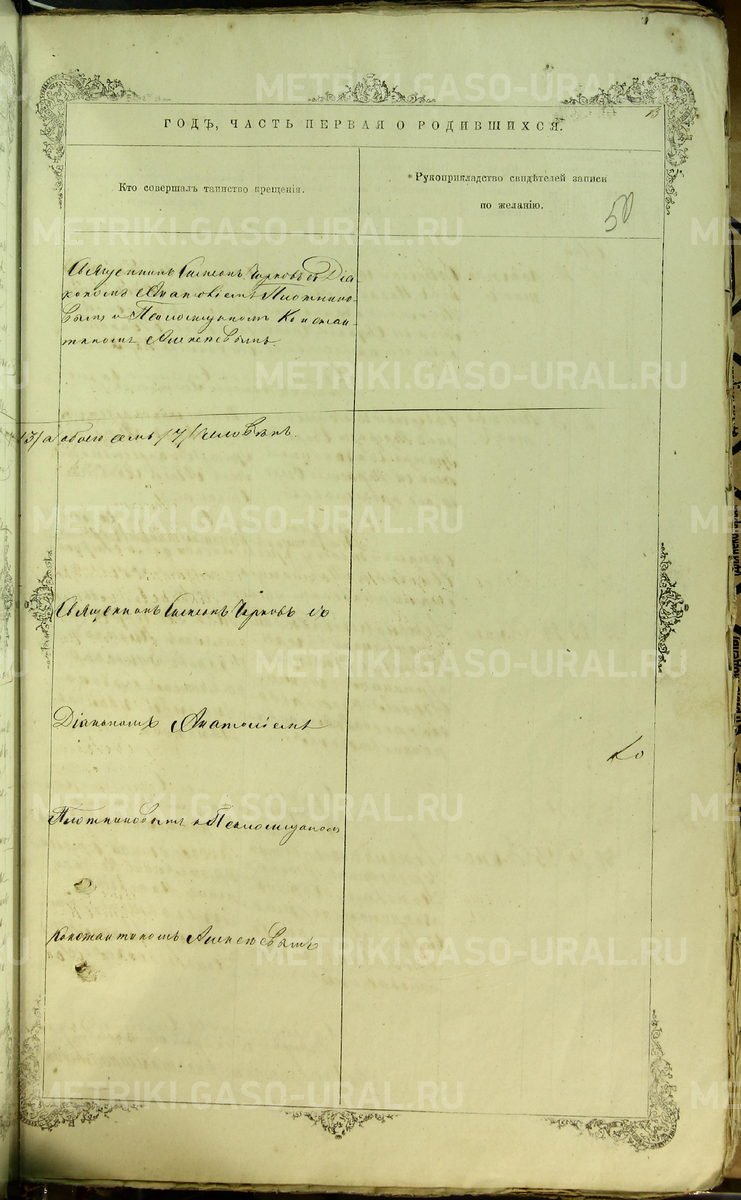 METRIKI.GASO-URAL.RU
ГОДЪ, ЧАСТЬ ПЕРВАЯ О РОДИВШИХСЯ.
Кто совершалъ таинство крещенія.
* Рукоприкладство свидѣтелей записи
по желанію.
50
Священникъ Симеонъ съ Діа
кономъ Анатоліемъ Плотнико-
вымъ и Псаломщикомъ Констан-
тиномъ Алексѣевымъ.
3/ а обоего семь /7/ человѣкъ.
METRIKI.GASO-URAL.RU
Священникъ Симеонъ съ
METRIKI.GASO-URAL.RU
Діакономъ Анатоліемъ
METRIKI.GASO-URAL.RU
Плотниковымъ и Псаломщикомъ
Константиномъ Алексѣевымъ
METRIKI.GASO-URAL.RU
METRIKI.GASO-URAL.RU